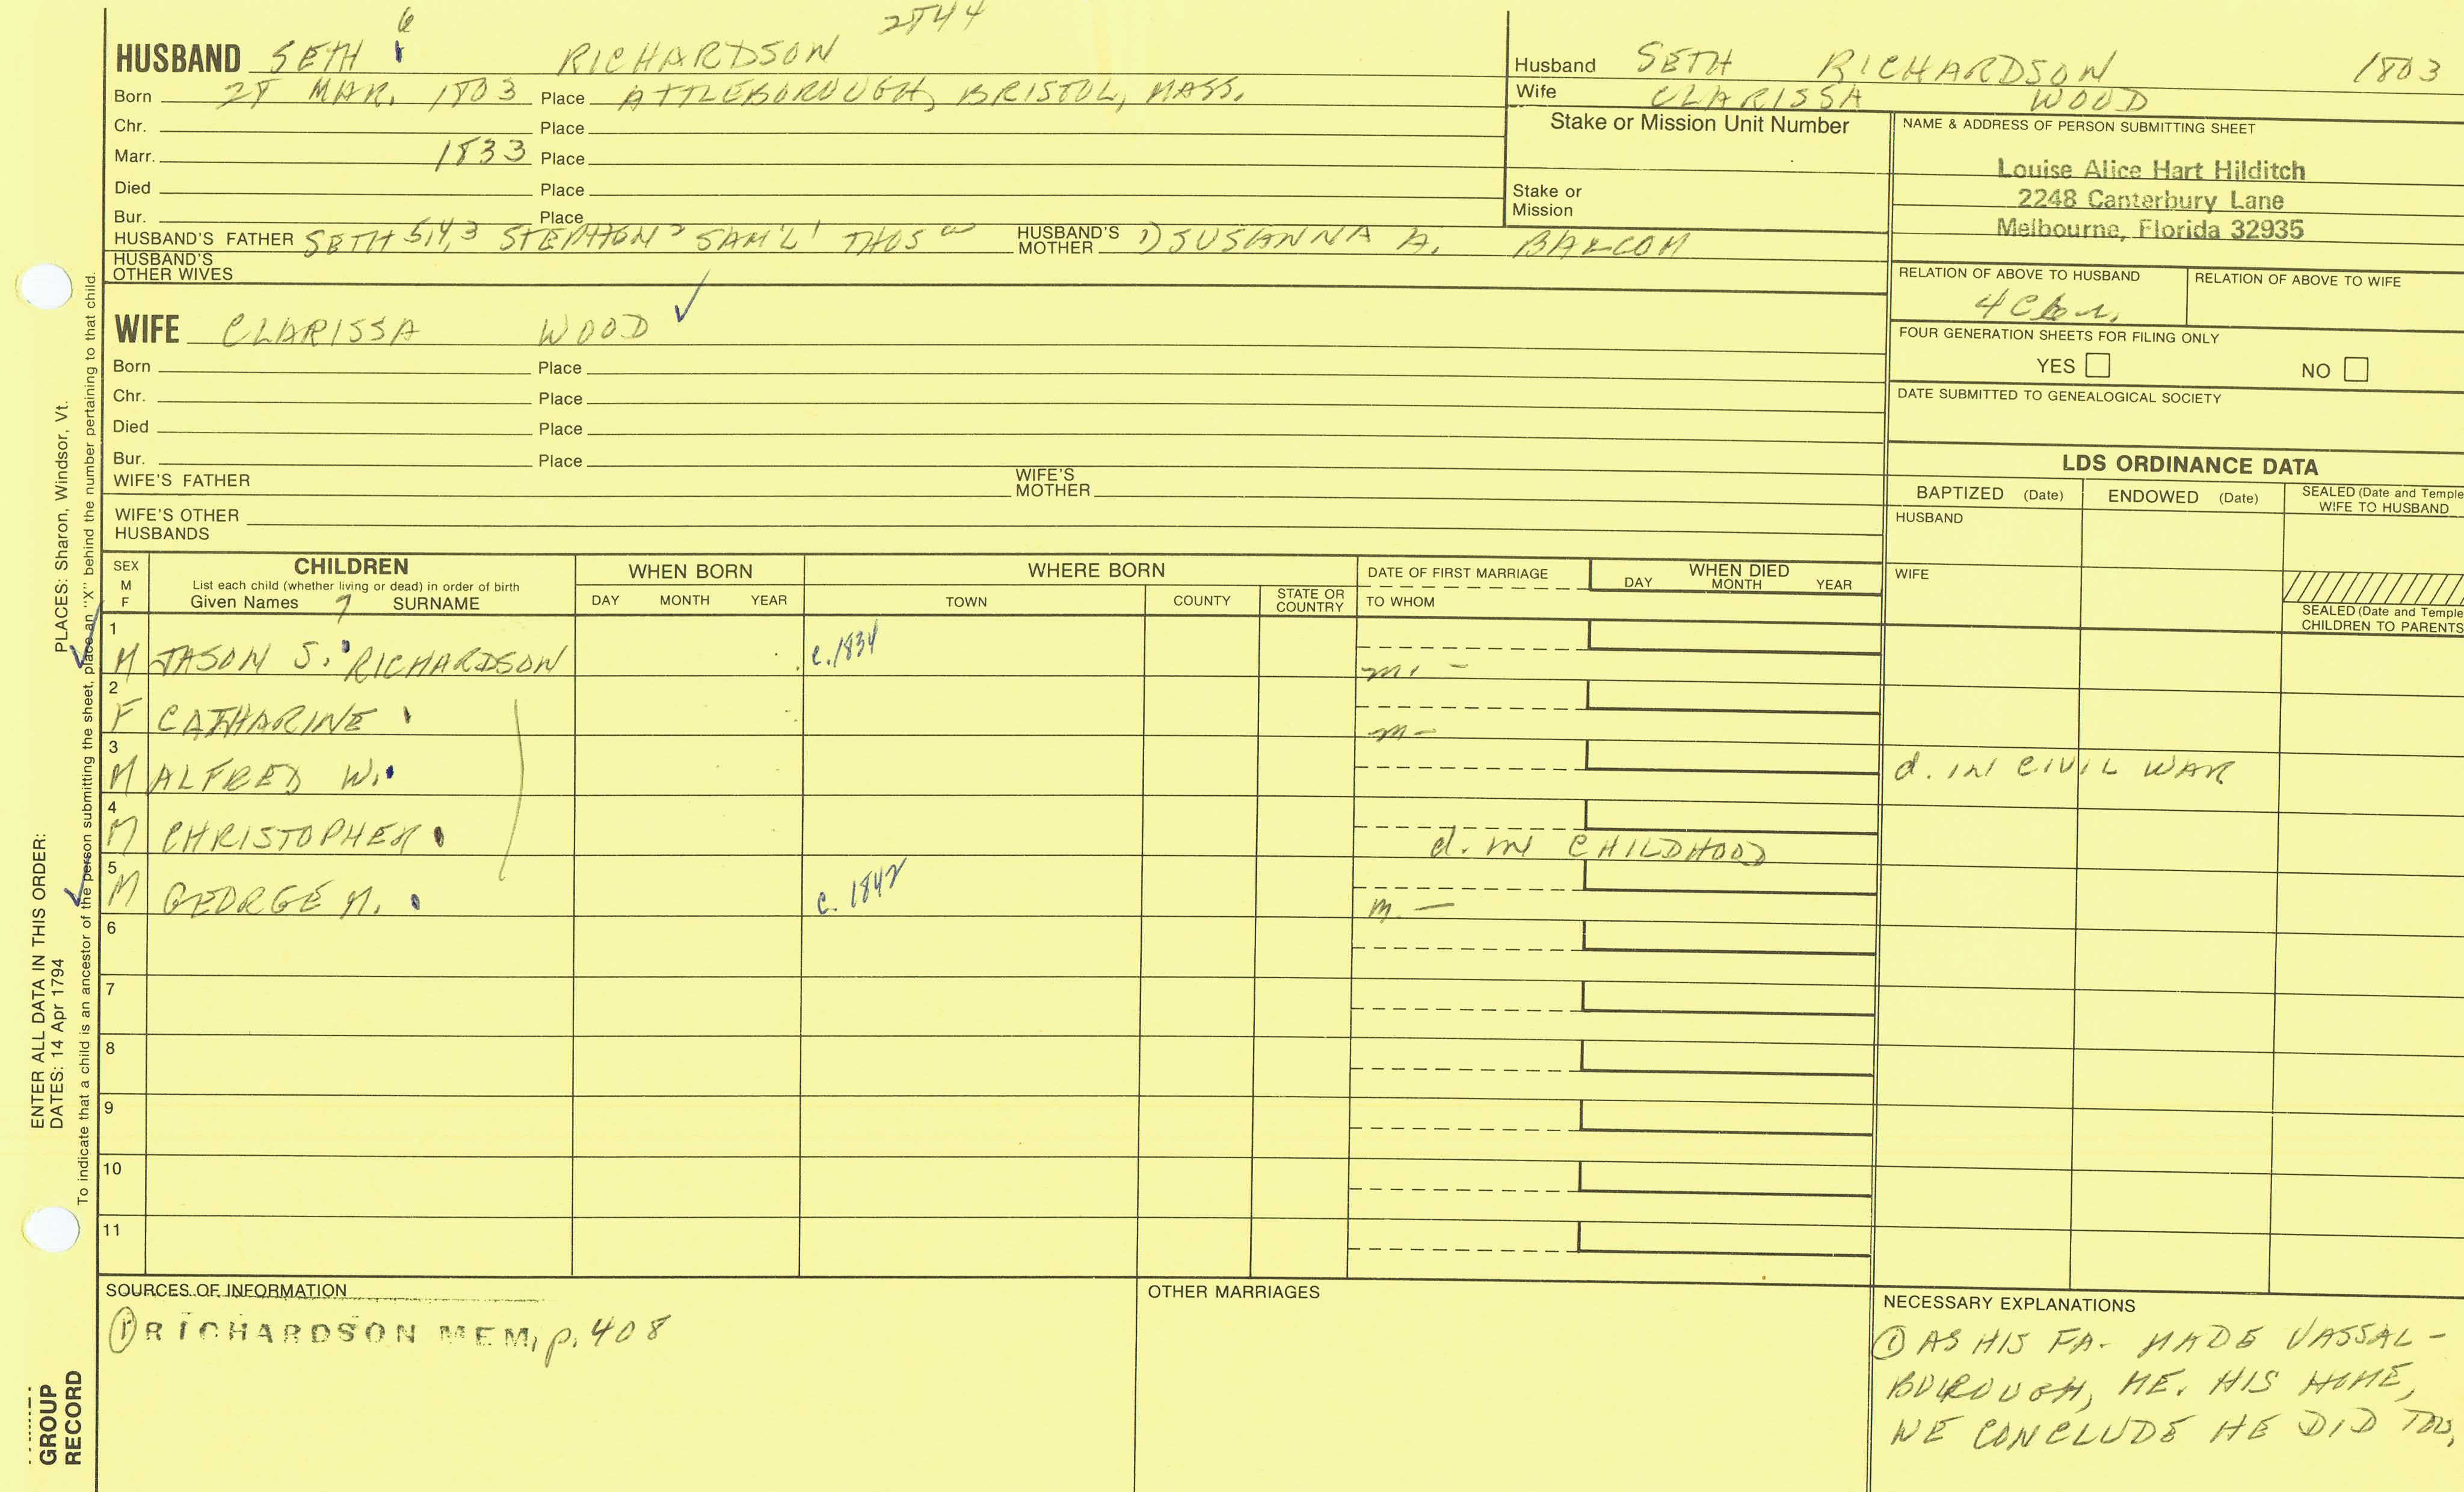 2844
6
HUSBAND SETH RICHARDSON
Born 28 MAR. 1803 Place ATTLEBOROUGH, BRISTOL, MASS.
Chr. Place
Marr. 1833 Place
Died Place
Bur. Place
HUSBAND'S FATHER SETH 5,4,3 STEPHEN 2 SAM'L 1 THOS HUSBAND'S MOTHER 1) SUSANNA A. BALCOM
HUSBAND'S OTHER WIVES
WIFE CLARISSA WOOD ✓
Born Place
Chr. Place
Died Place
Bur. Place
WIFE'S FATHER WIFE'S MOTHER
WIFE'S OTHER HUSBANDS
Husband SETH RICHARDSON 1803
Wife CLARISSA WOOD
Stake or Mission Unit Number
Stake or Mission
NAME & ADDRESS OF PERSON SUBMITTING SHEET
Louise Alice Hart Hilditch
2248 Canterbury Lane
Melbourne, Florida 32935
RELATION OF ABOVE TO HUSBAND RELATION OF ABOVE TO WIFE
FOUR GENERATION SHEETS FOR FILING ONLY
YES NO
DATE SUBMITTED TO GENEALOGICAL SOCIETY
LDS ORDINANCE DATA
BAPTIZED (Date) ENDOWED (Date) SEALED (Date and Temple
WIFE TO HUSBAND
HUSBAND
WIFE
SEALED (Date and Temple
CHILDREN TO PARENTS
SEX M F
CHILDREN
List each child (whether living or dead) in order of birth
Given Names 7 SURNAME
WHEN BORN
DAY MONTH YEAR
WHERE BORN
TOWN COUNTY STATE OR COUNTRY
DATE OF FIRST MARRIAGE
TO WHOM
WHEN DIED
DAY MONTH YEAR
1 M JASON S. RICHARDSON c.1834 m. -
2 F CATHARINE m -
3 M ALFRED W. d. IN CIVIL WAR
4 M CHRISTOPHER d. IN CHILDHOOD
5 M GEORGE M. c. 1842 m. —
6
7
8
9
10
11
SOURCES OF INFORMATION
① RICHARDSON MEM, p. 408
OTHER MARRIAGES
NECESSARY EXPLANATIONS
① AS HIS FA. MADE VASSAL-
BOROUGH, ME. HIS HOME,
WE CONCLUDE HE DID TOO,
PLACES: Sharon, Windsor, Vt.
To indicate that a child is an ancestor of the person submitting the sheet, place an "X" behind the number pertaining to that child.
ENTER ALL DATA IN THIS ORDER:
DATES: 14 Apr 1794
GROUP
RECORD